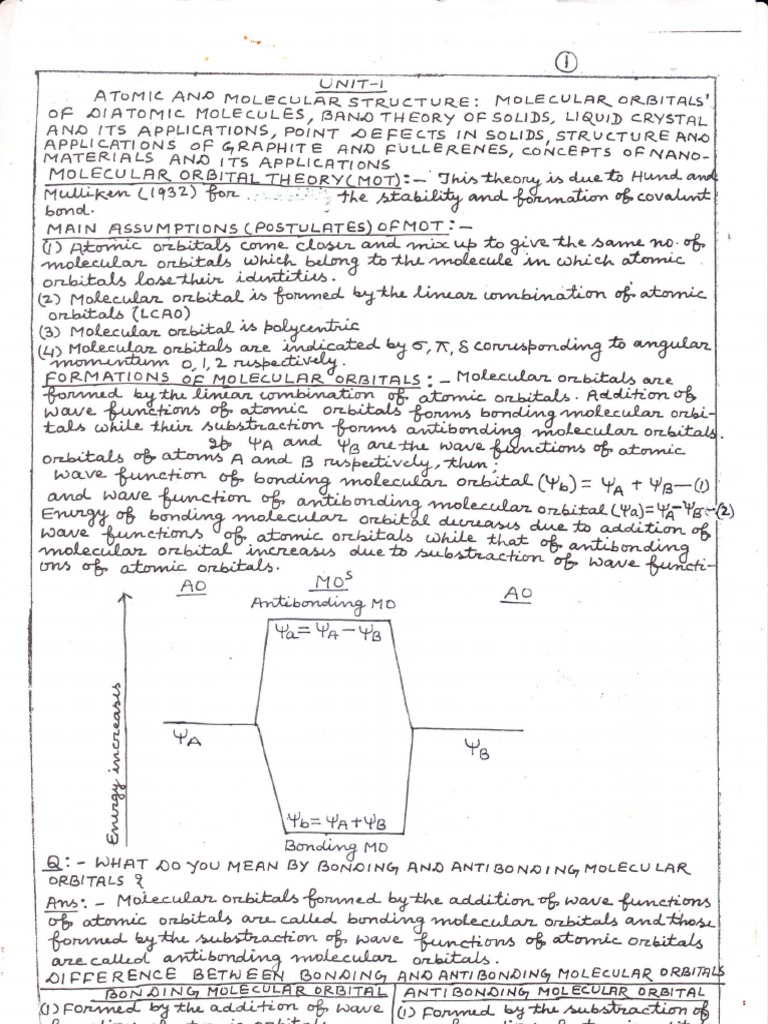 ①
UNIT-1
ATOMIC AND MOLECULAR STRUCTURE: MOLECULAR ORBITALS'
OF DIATOMIC MOLECULES, BAND THEORY OF SOLIDS, LIQUID CRYSTAL
AND ITS APPLICATIONS, POINT DEFECTS IN SOLIDS, STRUCTURE AND
APPLICATIONS OF GRAPHITE AND FULLERENES, CONCEPTS OF NANO-
MATERIALS AND ITS APPLICATIONS
MOLECULAR ORBITAL THEORY (MOT):- This theory is due to Hund and
Mulliken (1932) for the stability and formation of covalent
bond.
MAIN ASSUMPTIONS (POSTULATES) OF MOT:-
(1) Atomic orbitals come closer and mix up to give the same no. of
molecular orbitals which belong to the molecule in which atomic
orbitals lose their identities.
(2) Molecular orbital is formed by the linear combination of atomic
orbitals (LCAO)
(3) Molecular orbital is polycentric
(4) Molecular orbitals are indicated by σ, π, δ corresponding to angular
momentum 0, 1, 2 respectively.
FORMATIONS OF MOLECULAR ORBITALS:- Molecular orbitals are
formed by the linear combination of atomic orbitals. Addition of
wave functions of atomic orbitals forms bonding molecular orbi-
tals while their substraction forms antibonding molecular orbitals.
If ΨA and ΨB are the wave functions of atomic
orbitals of atoms A and B respectively, then;
wave function of bonding molecular orbital (Ψb) = ΨA + ΨB — (1)
and wave function of antibonding molecular orbital (Ψa) = ΨA - ΨB — (2)
Energy of bonding molecular orbital decreases due to addition of
wave functions of atomic orbitals while that of antibonding
molecular orbital increases due to substraction of wave functi-
ons of atomic orbitals.
AO MOˢ AO
Antibonding MO
Ψa = ΨA - ΨB
Energy increases
ΨA ΨB
Ψb = ΨA + ΨB
Bonding MO
Q:- WHAT DO YOU MEAN BY BONDING AND ANTIBONDING MOLECULAR
ORBITALS ?
Ans:- Molecular orbitals formed by the addition of wave functions
of atomic orbitals are called bonding molecular orbitals and those
formed by the substraction of wave functions of atomic orbitals
are called antibonding molecular orbitals.
DIFFERENCE BETWEEN BONDING AND ANTIBONDING MOLECULAR ORBITALS
BONDING MOLECULAR ORBITAL ANTIBONDING MOLECULAR ORBITAL
(1) Formed by the addition of wave (1) Formed by the substraction of